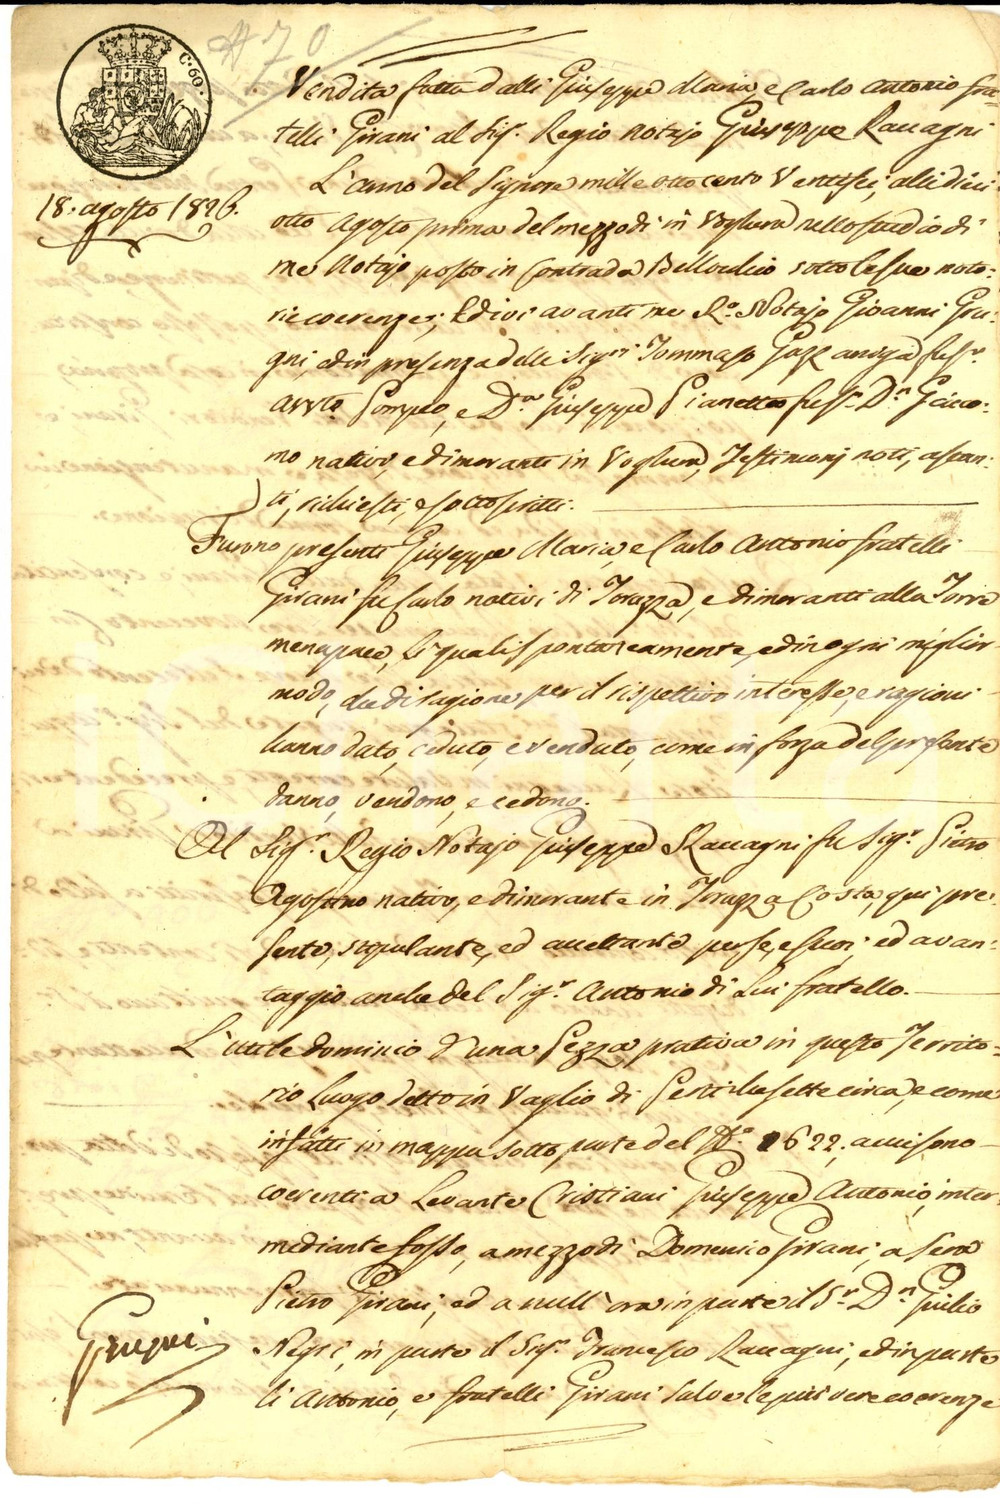 N 70
C. 60.
18. agosto 1826.
Vendita fatta dalli Giuseppe Maria e Carlo Antonio fra-
telli Girani al Sigr. Regio Notajo Giuseppe Raccagni
L'anno del Signore mille otto cento Ventisei, alli dieci
otto Agosto prima del mezzodi in Voghera nello studio di
me Notajo posto in Contrada Bellocchio sotto le sue noto-
rie coerenze; Ed ivi avanti me Ro. Notajo Giovanni Giu-
gni, ed in presenza delli Sigri Tommaso Gazzaniga fu Sr.
avvto. Pompeo, e Dn Giuseppe Pianetta fu Sr. Dn Giaco-
mo nativi, e dimoranti in Voghera, Testimonj noti, astan-
ti, richiesti, e sottoscritti.
Furono presenti Giuseppe Maria, e Carlo Antonio fratelli
Girani fu Carlo nativi di Torazza, e dimoranti alla Torre
menapace, li quali spontaneamente, ed in ogni miglior
modo, che di ragione per il rispettivo interesse, e ragioni
hanno dato, ceduto, e venduto, come in forza del presente
danno, vendono, e cedono.
Al Sigr. Regio Notajo Giuseppe Raccagni fu Sigr. Pietro
Agostino nativo, e dimorante in Torazza Costa, qui pre-
sente, stipulante, ed accettante per se, e suoi, ed a van-
taggio anche del Sigr. Antonio di Lui fratello.
L'utile dominio d'una Pezza prativa in questo Territo-
rio Luogo detto in Vaglio di Pertiche sette circa, e come
infatti in mappa sotto parte del No. 1622, a cui sono
coerenti a Levante Cristiani Giuseppe Antonio, inter-
mediante fosso, a mezzodi Domenico Girani, a sera
Pietro Girani, ed a null'ora in parte il Sr. Dn Giulio
Negri, in parte il Sigr. Francesco Raccagni, ed in parte
li Antonio, e fratelli Girani salve le più vere coerenze
Giugni